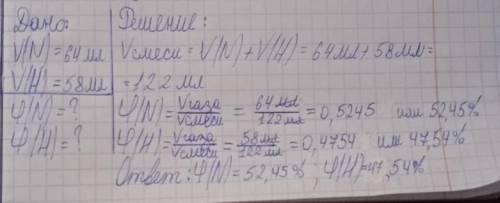 Дано:
V(N)=64 мл
V(H)=58мл
φ(N)=?
φ(H)=?
Решение:
Vсмеси = V(N)+V(H)=64мл+58мл=
=122 мл
φ(N)=Vгаза/Vсмеси = 64мл/122мл = 0,5245 или 52,45%
φ(H)=Vгаза/Vсмеси = 58мл/122мл = 0,4754 или 47,54%
Ответ: φ(N)=52,45%; φ(H)=47,54%